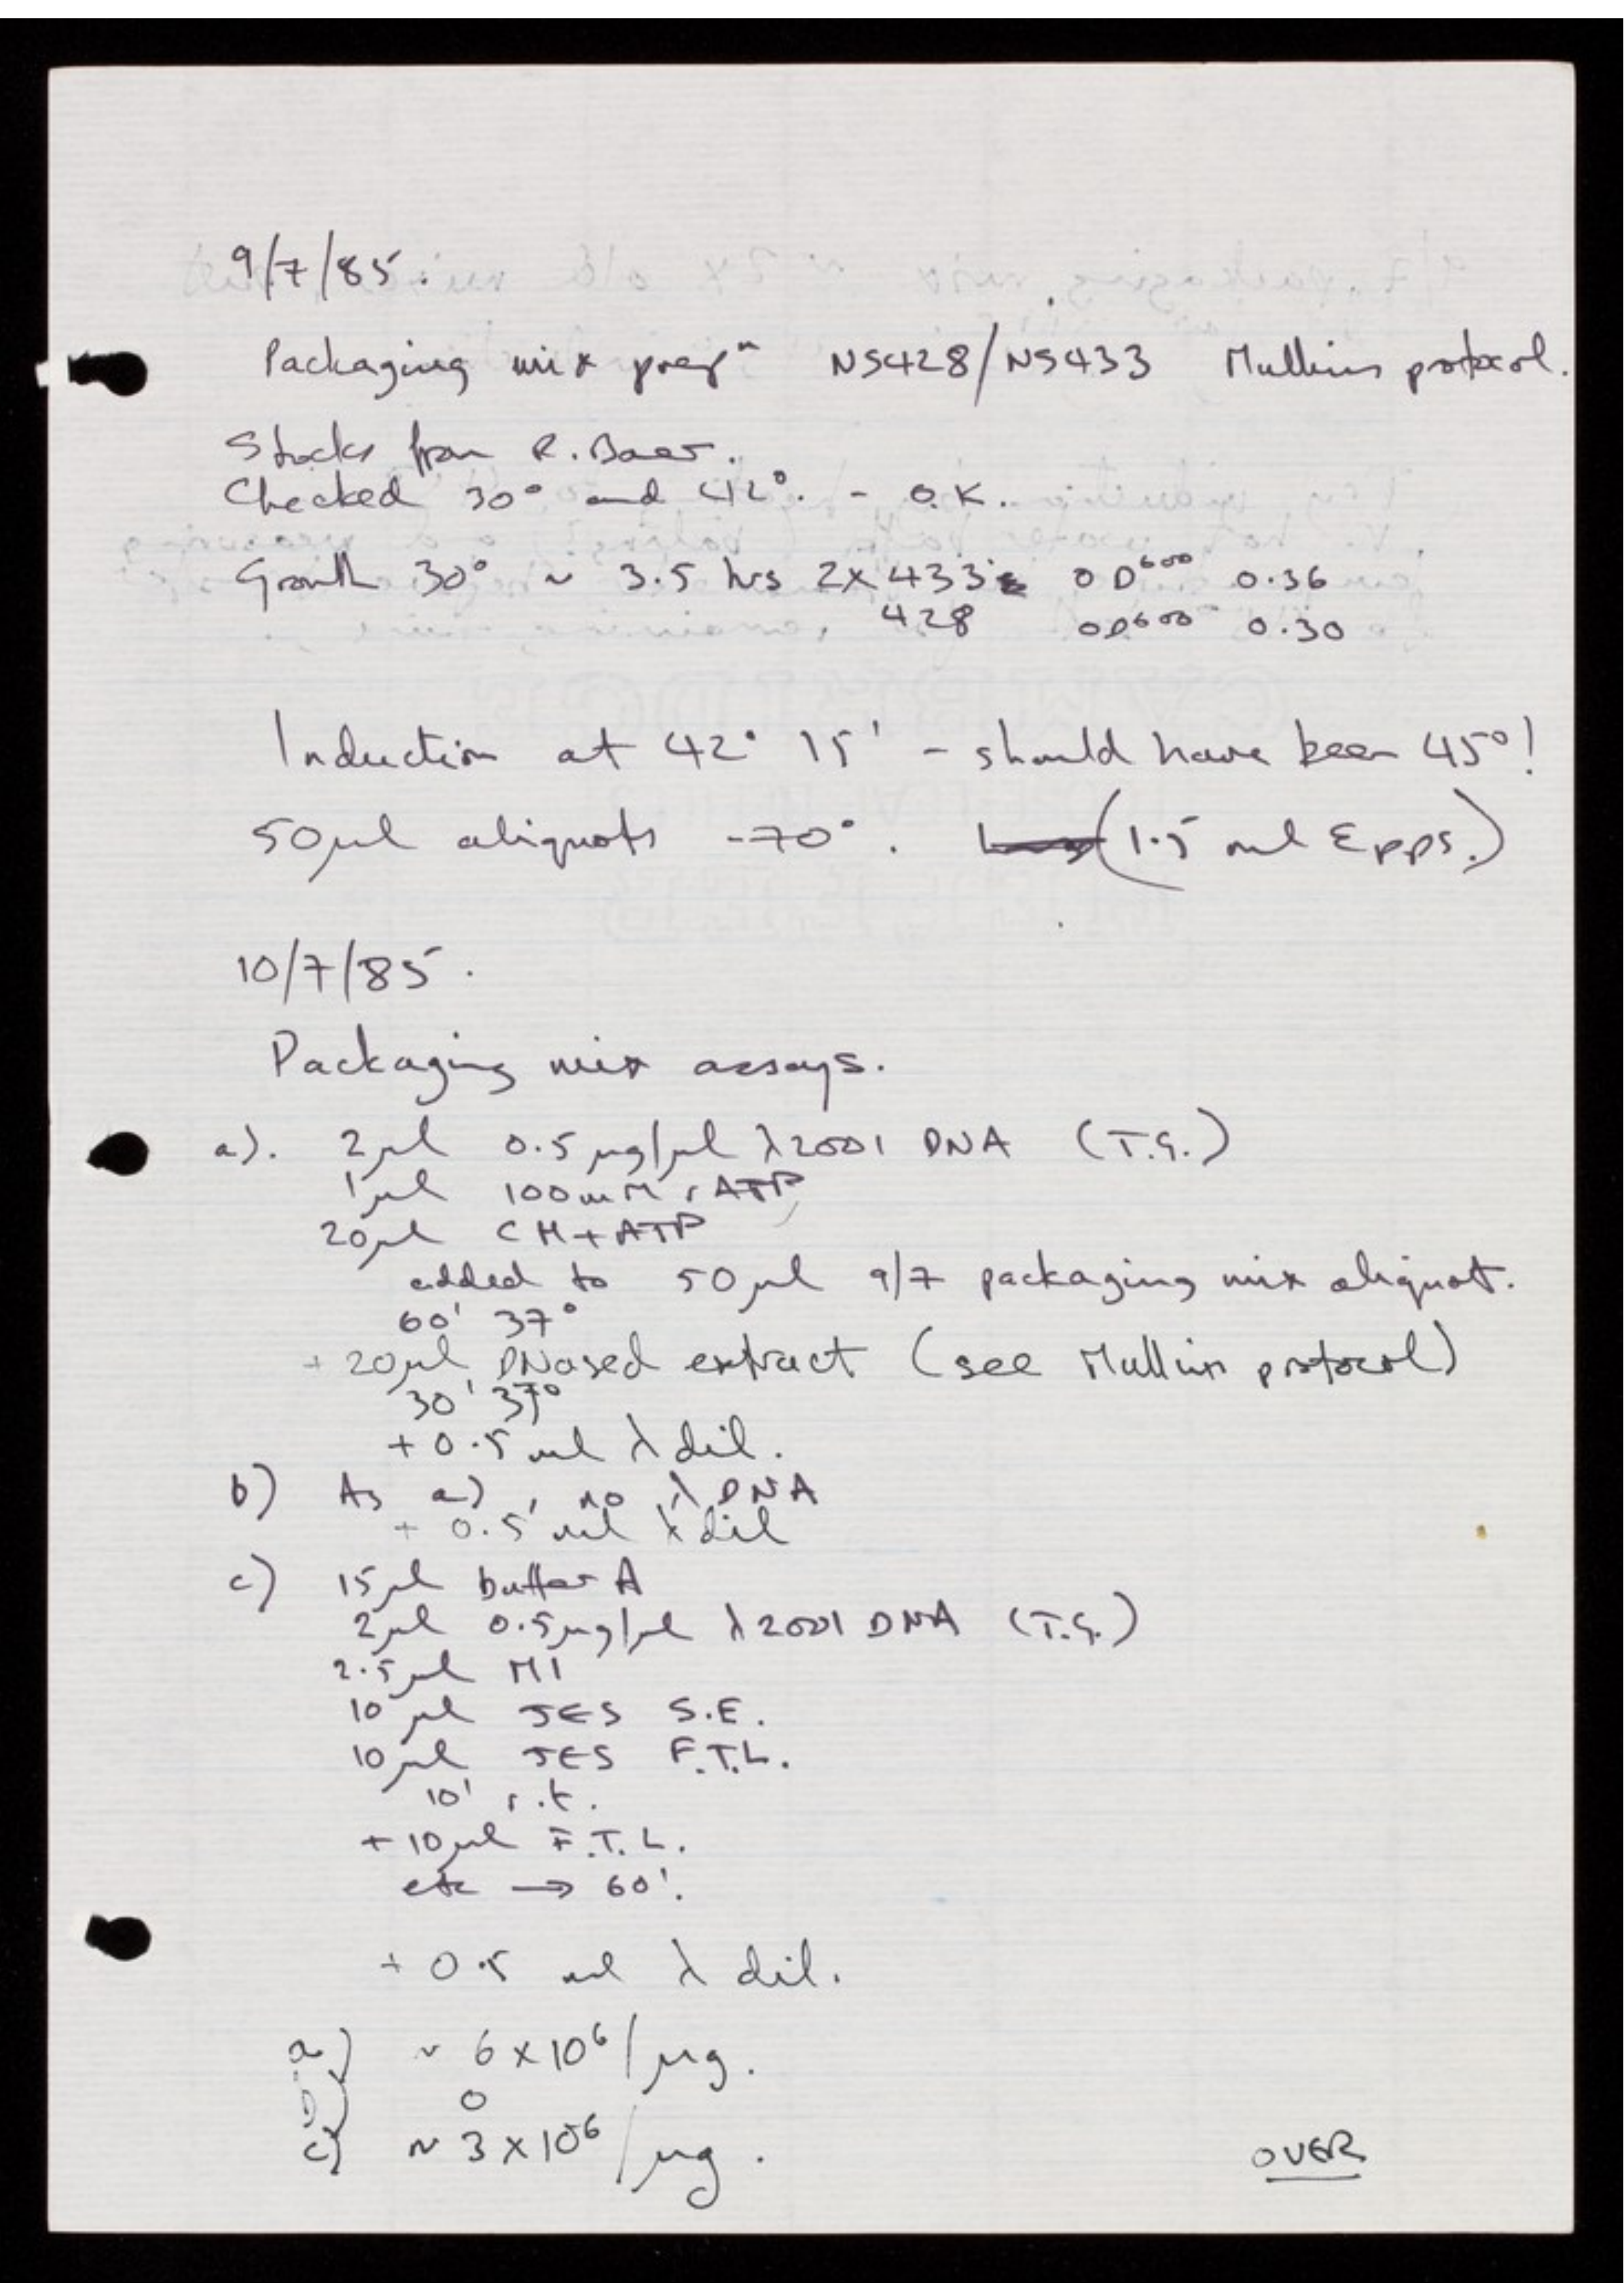 9/7/85.
Packaging mix prepⁿ NS428/NS433 Mullins protocol.
Stocks from R. Baer.
Checked 30° and 42°. - O.K.
Growth 30° ~ 3.5 hrs 2X 433 OD⁶⁰⁰ 0.36
428 OD⁶⁰⁰ 0.30
Induction at 42° 15' - should have been 45°!
50µl aliquots -70°. (1.5 ml Epps.)
10/7/85.
Packaging mix assays.
a). 2µl 0.5µg/µl λ2001 DNA (T.G.)
1µl 100mM rATP
20µl CH+ATP
added to 50µl 9/7 packaging mix aliquot.
60' 37°
+ 20µl DNased extract (see Mullins protocol)
30' 37°
+ 0.5 ml λ dil.
b) As a), no λ DNA
+ 0.5 ml λ dil
c) 15µl buffer A
2µl 0.5µg/µl λ2001 DNA (T.G.)
2.5µl M1
10µl JES S.E.
10µl JES F.T.L.
10' r.t.
+ 10µl F.T.L.
etc → 60'.
+ 0.5 ml λ dil.
a) ~ 6 x 10⁶/µg.
b) 0
c) ~ 3 x 10⁶/µg.
OVER